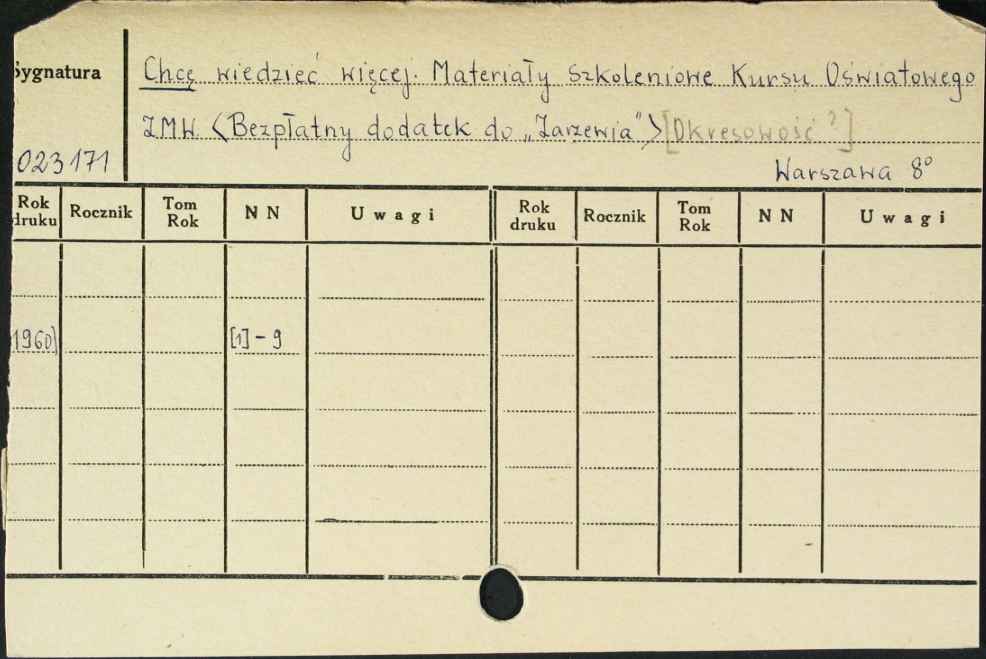 Sygnatura
Chcę wiedzieć więcej. Materiały Szkoleniowe Kursu Oświatowego
ZMW <Bezpłatny dodatek do „Zarzewia”> [Okresowość?]
023171
Warszawa 8°
Rok druku Rocznik Tom Rok NN Uwagi Rok druku Rocznik Tom Rok NN Uwagi
1960) [1] - 9